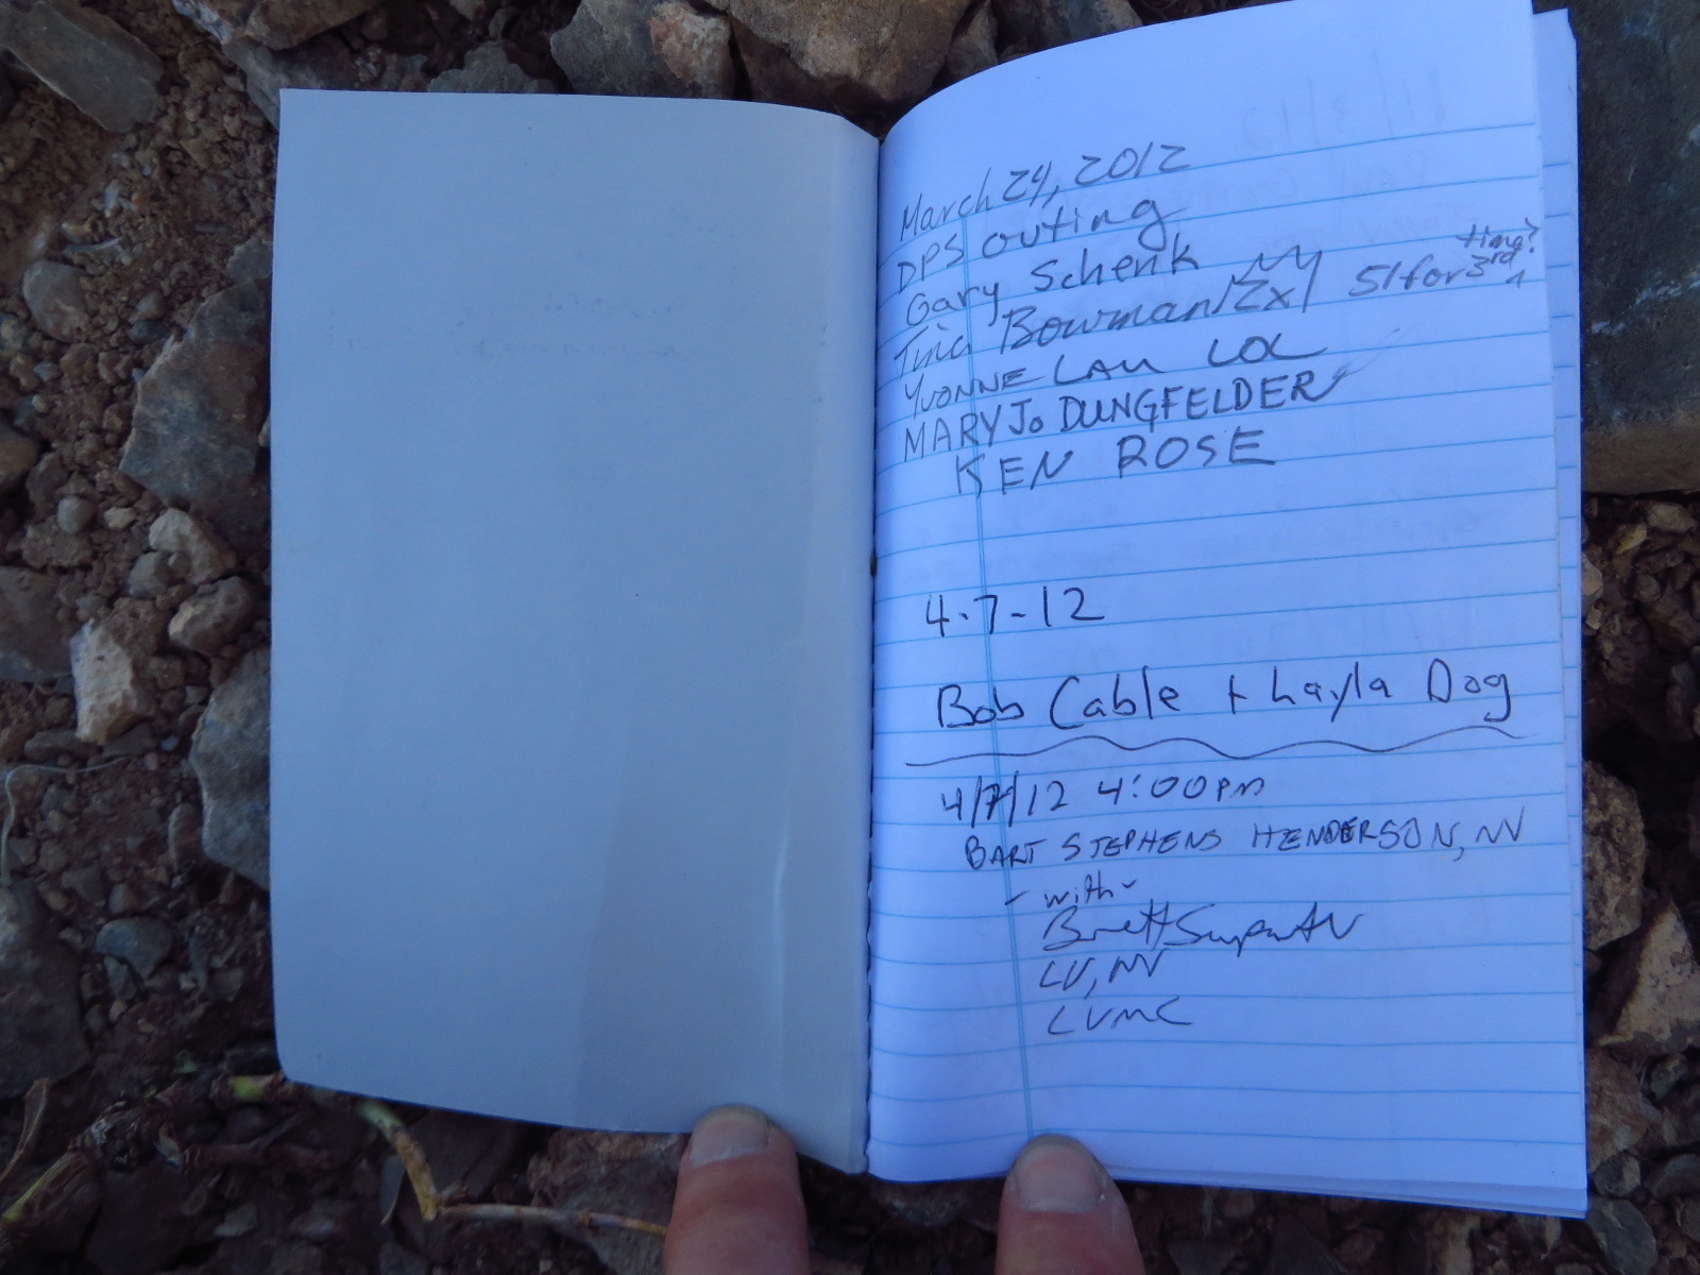 March 24, 2012
DPS outing
Gary Schenk
Tina Bowman 51 for 3rd time?
YVONNE LAU LOL
MARY JO DUNGFELDER
KEN ROSE
4-7-12
Bob Cable + Layla Dog
4/7/12 4:00 pm
BART STEPHENS HENDERSON, NV
- with -
Brett
LV, NV
LVMC